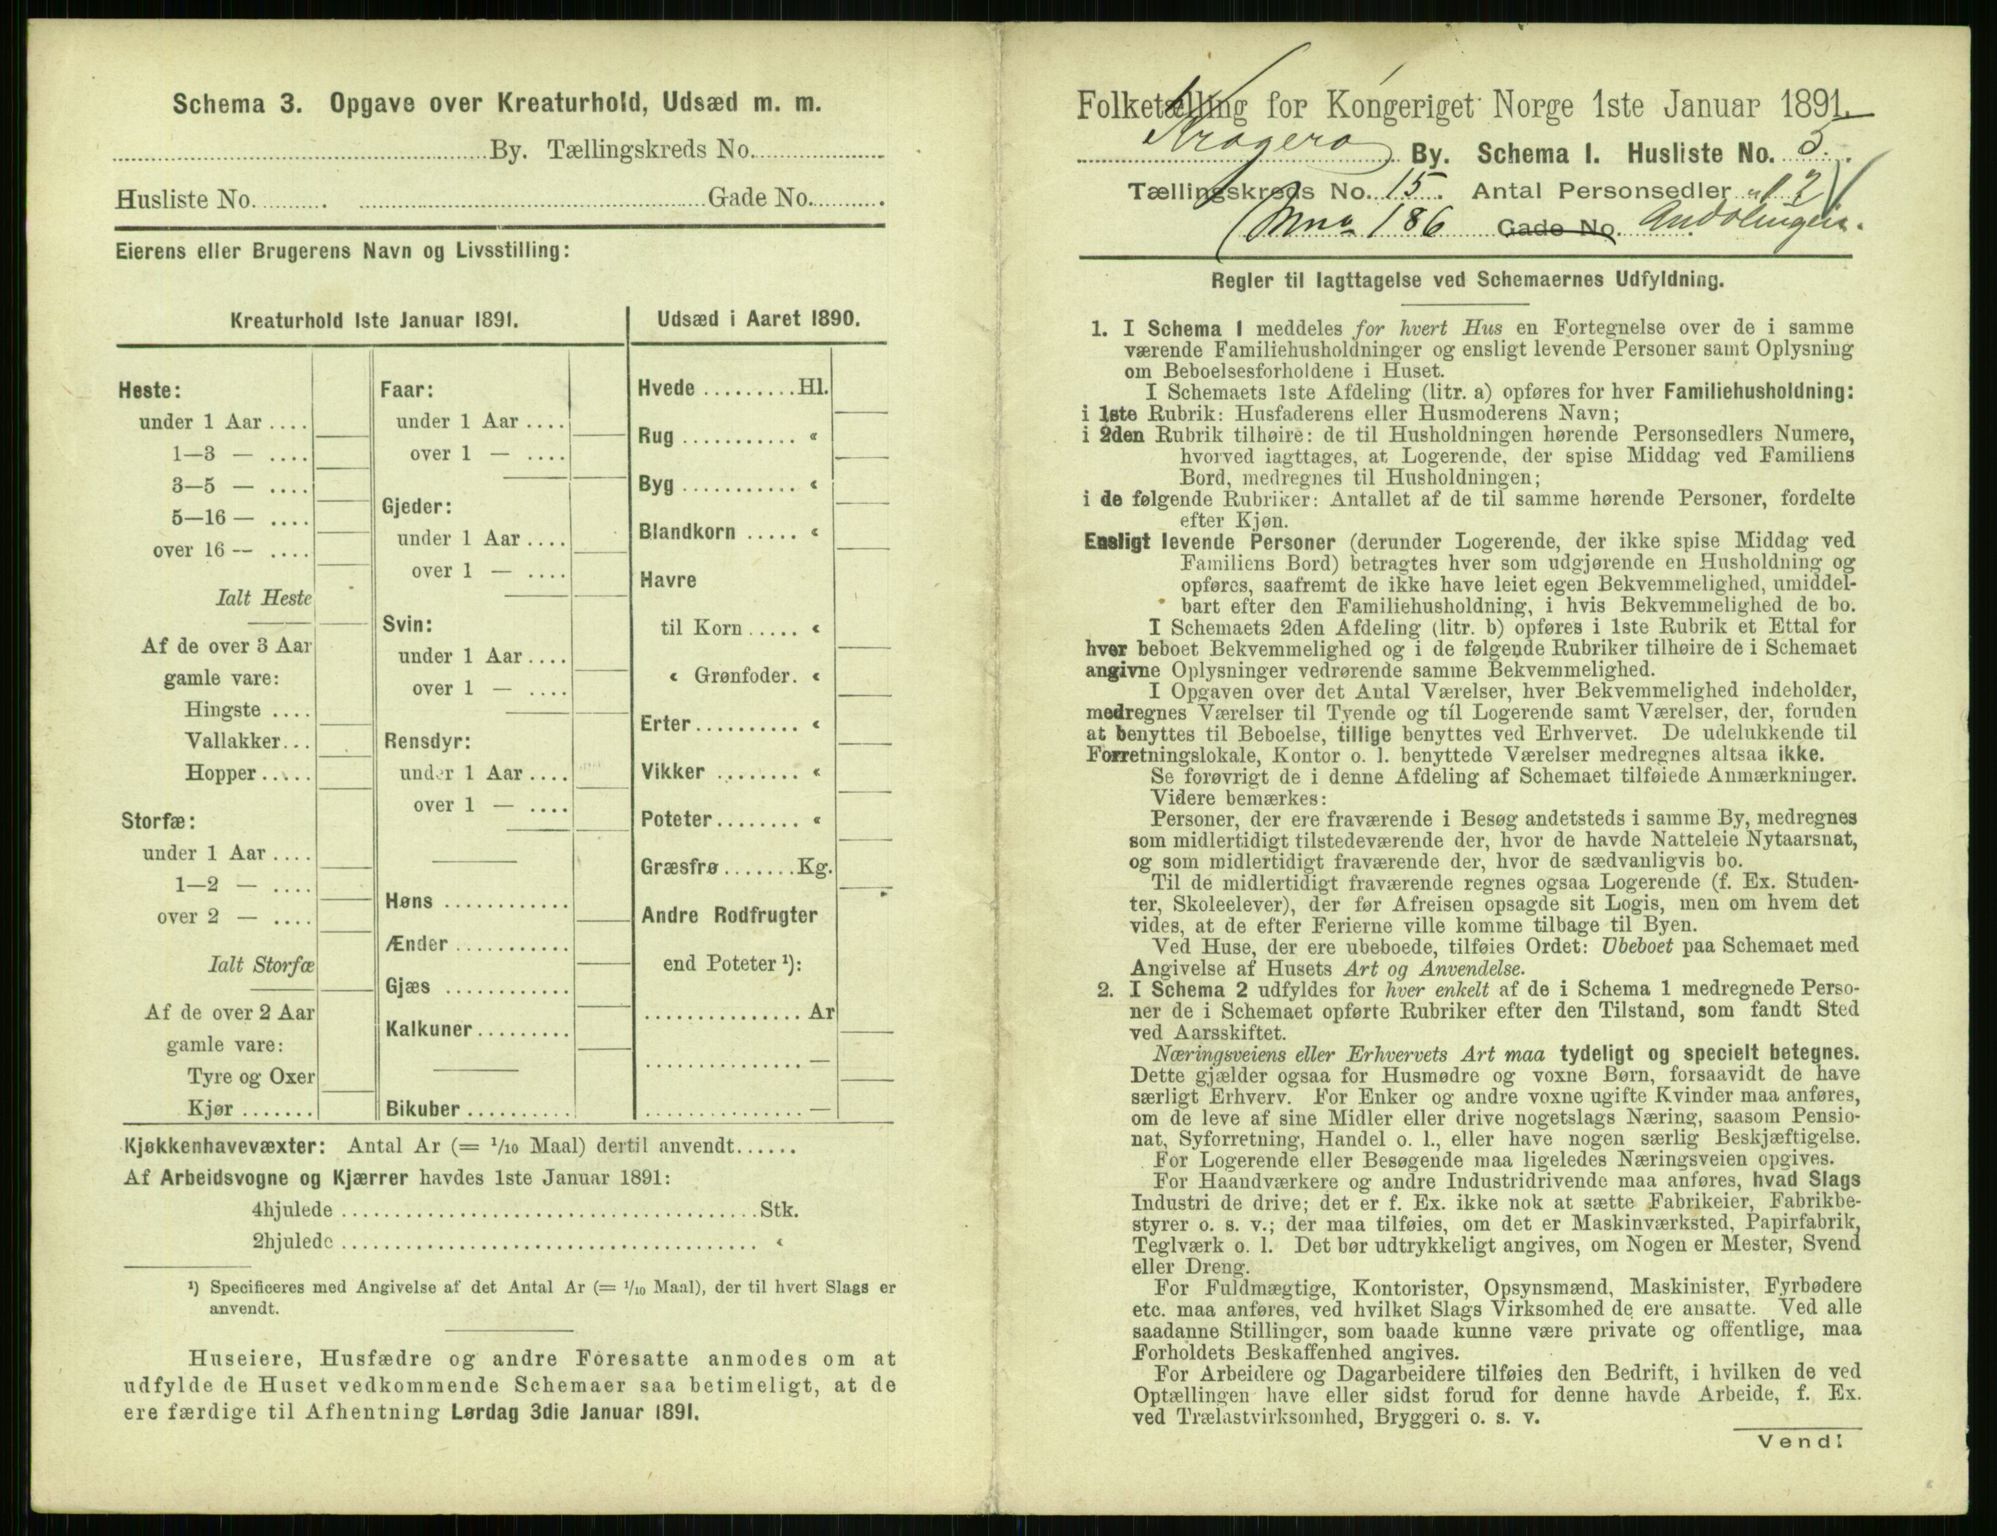 Schema 3. Opgave over Kreaturhold, Udsæd m. m.
By. Tællingskreds No.
Husliste No. Gade No.
Eierens eller Brugerens Navn og Livsstilling:
Kreaturhold 1ste Januar 1891.
Heste:
under 1 Aar ....
1—3 — ....
3—5 — ....
5—16 — ....
over 16 — ....
Ialt Heste
Af de over 3 Aar
gamle vare:
Hingste ....
Vallakker...
Hopper .....
Storfæ:
under 1 Aar ....
1—2 — ....
over 2 — ....
Ialt Storfæ
Af de over 2 Aar
gamle vare:
Tyre og Oxer
Kjør .......
Faar:
under 1 Aar ....
over 1 — ....
Gjeder:
under 1 Aar ....
over 1 — ....
Svin:
under 1 Aar ....
over 1 — ....
Rensdyr:
under 1 Aar ....
over 1 — ....
Høns ............
Ænder ...........
Gjæs ............
Kalkuner.........
Bikuber ..........
Udsæd i Aaret 1890.
Hvede .........Hl.
Rug ........... «
Byg ........... «
Blandkorn ..... «
Havre
til Korn ..... «
« Grønfoder. «
Erter.......... «
Vikker ........ «
Poteter........ «
Græsfrø .......Kg.
Andre Rodfrugter
end Poteter ¹):
............... Ar
............... —
............... —
Kjøkkenhavevæxter: Antal Ar (= 1/10 Maal) dertil anvendt......
Af Arbeidsvogne og Kjærrer havdes 1ste Januar 1891:
4hjulede ......................................Stk.
2hjulede ...................................... «
¹) Specificeres med Angivelse af det Antal Ar (= 1/10 Maal), der til hvert Slags er
anvendt.
Huseiere, Husfædre og andre Foresatte anmodes om at
udfylde de Huset vedkommende Schemaer saa betimeligt, at de
ere færdige til Afhentning Lørdag 3die Januar 1891.
Folketælling for Kongeriget Norge 1ste Januar 1891.
Kragerø By. Schema I. Husliste No. 5.
Tællingskreds No. 15. Antal Personsedler 12
186 Gade No.
Regler til Iagttagelse ved Schemaernes Udfyldning.
1. I Schema 1 meddeles for hvert Hus en Fortegnelse over de i samme
værende Familiehusholdninger og ensligt levende Personer samt Oplysning
om Beboelsesforholdene i Huset.
I Schemaets 1ste Afdeling (litr. a) opføres for hver Familiehusholdning:
i 1ste Rubrik: Husfaderens eller Husmoderens Navn;
i 2den Rubrik tilhøire: de til Husholdningen hørende Personsedlers Numere,
hvorved iagttages, at Logerende, der spise Middag ved Familiens
Bord, medregnes til Husholdningen;
i de følgende Rubriker: Antallet af de til samme hørende Personer, fordelte
efter Kjøn.
Ensligt levende Personer (derunder Logerende, der ikke spise Middag ved
Familiens Bord) betragtes hver som udgjørende en Husholdning og
opføres, saafremt de ikke have leiet egen Bekvemmelighed, umiddel-
bart efter den Familiehusholdning, i hvis Bekvemmelighed de bo.
I Schemaets 2den Afdeling (litr. b) opføres i 1ste Rubrik et Ettal for
hver beboet Bekvemmelighed og i de følgende Rubriker tilhøire de i Schemaet
angivne Oplysninger vedrørende samme Bekvemmelighed.
I Opgaven over det Antal Værelser, hver Bekvemmelighed indeholder,
medregnes Værelser til Tyende og til Logerende samt Værelser, der, foruden
at benyttes til Beboelse, tillige benyttes ved Erhvervet. De udelukkende til
Forretningslokale, Kontor o. l. benyttede Værelser medregnes altsaa ikke.
Se forøvrigt de i denne Afdeling af Schemaet tilføiede Anmærkninger.
Videre bemærkes:
Personer, der ere fraværende i Besøg andetsteds i samme By, medregnes
som midlertidigt tilstedeværende der, hvor de havde Natteleie Nytaarsnat,
og som midlertidigt fraværende der, hvor de sædvanligvis bo.
Til de midlertidigt fraværende regnes ogsaa Logerende (f. Ex. Studen-
ter, Skoleelever), der før Afreisen opsagde sit Logis, men om hvem det
vides, at de efter Ferierne ville komme tilbage til Byen.
Ved Huse, der ere ubeboede, tilføies Ordet: Ubeboet paa Schemaet med
Angivelse af Husets Art og Anvendelse.
2. I Schema 2 udfyldes for hver enkelt af de i Schema 1 medregnede Perso-
ner de i Schemaet opførte Rubriker efter den Tilstand, som fandt Sted
ved Aarsskiftet.
Næringsveiens eller Erhvervets Art maa tydeligt og specielt betegnes.
Dette gjælder ogsaa for Husmødre og voxne Børn, forsaavidt de have
særligt Erhverv. For Enker og andre voxne ugifte Kvinder maa anføres,
om de leve af sine Midler eller drive nogetslags Næring, saasom Pensio-
nat, Syforretning, Handel o. l., eller have nogen særlig Beskjæftigelse.
For Logerende eller Besøgende maa ligeledes Næringsveien opgives.
For Haandværkere og andre Industridrivende maa anføres, hvad Slags
Industri de drive; det er f. Ex. ikke nok at sætte Fabrikeier, Fabrikbe-
styrer o. s. v.; der maa tilføies, om det er Maskinværksted, Papirfabrik,
Teglværk o. l. Det bør udtrykkeligt angives, om Nogen er Mester, Svend
eller Dreng.
For Fuldmægtige, Kontorister, Opsynsmænd, Maskinister, Fyrbødere
etc. maa anføres, ved hvilket Slags Virksomhed de ere ansatte. Ved alle
saadanne Stillinger, som baade kunne være private og offentlige, maa
Forholdets Beskaffenhed angives.
For Arbeidere og Dagarbeidere tilføies den Bedrift, i hvilken de ved
Optællingen have eller sidst forud for denne havde Arbeide, f. Ex.
ved Trælastvirksomhed, Bryggeri o. s. v.
Vend!